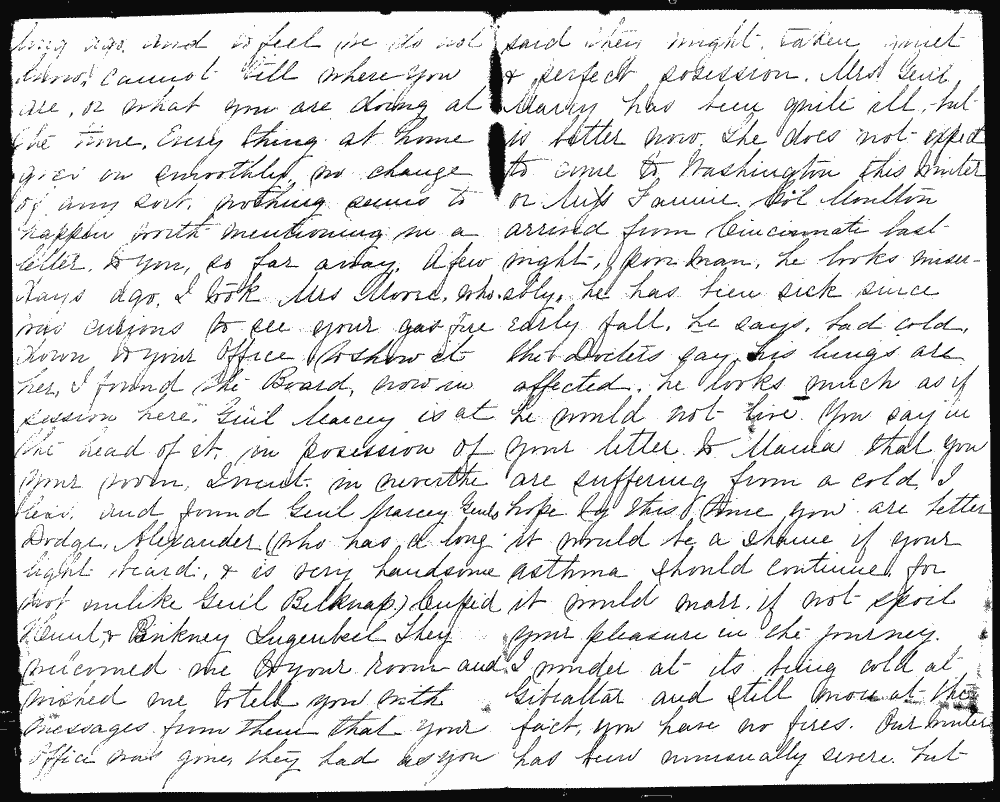 long ago, and to feel we do not
know, cannot tell where you
are, or what you are doing at
the time. Every thing at home
goes on smoothly, no change
of any sort, nothing seems to
happen worth mentioning in a
letter, to you, so far away. A few
days ago, I took Mrs Moore, who
was curious to see your gas fire
down to your Office to show it
her, I found the Board, now in
session here, Genl Marcy is at
the head of it, in posession of
your room, I went in neverthe
less, and found Genl Marcy, Genls
Dodge, Alexander (who has a long
light beard, & is very handsome
not unlike Genl Belknap.)
Hunt, & Pinkney Lugenbeel They
welcomed me to your room and
wished me to tell you with
messages from them that your
Office was given, they had as you
said they might, taken quiet
& perfect posession. Mrs Genl
Marcy has been quite ill, but
is better now. She does not expect
to come to Washington this Winter
or Miss Fannie. Col Moulton
arrived from Cincinnati last
night, poor man, he looks mise-
ably, he has been sick since
early fall, he says, bad cold,
the Docters say, his lungs are
affected, he looks much as if
he would not live. You say in
your letter to Mama that you
are suffering from a cold, I
hope by this time you are better
it would be a shame if your
asthma should continue, for
it would marr, if not spoil
your pleasure in the journey.
I wonder at its being cold at
Gibraltar and still more at the
fact, you have no fires. Our winter
has been unusually severe, but